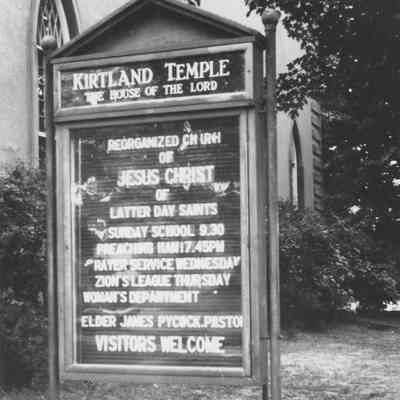 KIRTLAND TEMPLE
THE HOUSE OF THE LORD
REORGANIZED CHURH
OF
JESUS CHRIST
OF
LATTER DAY SAINTS
SUNDAY SCHOOL 9.30
PREACHING 7.45PM
RAYER SERVICE WEDNESDAY
ZION'S LEAGUE THURSDAY
WOMAN'S DEPARTMENT
ELDER JAMES PYCOCK.PASTO
VISITORS WELCOME